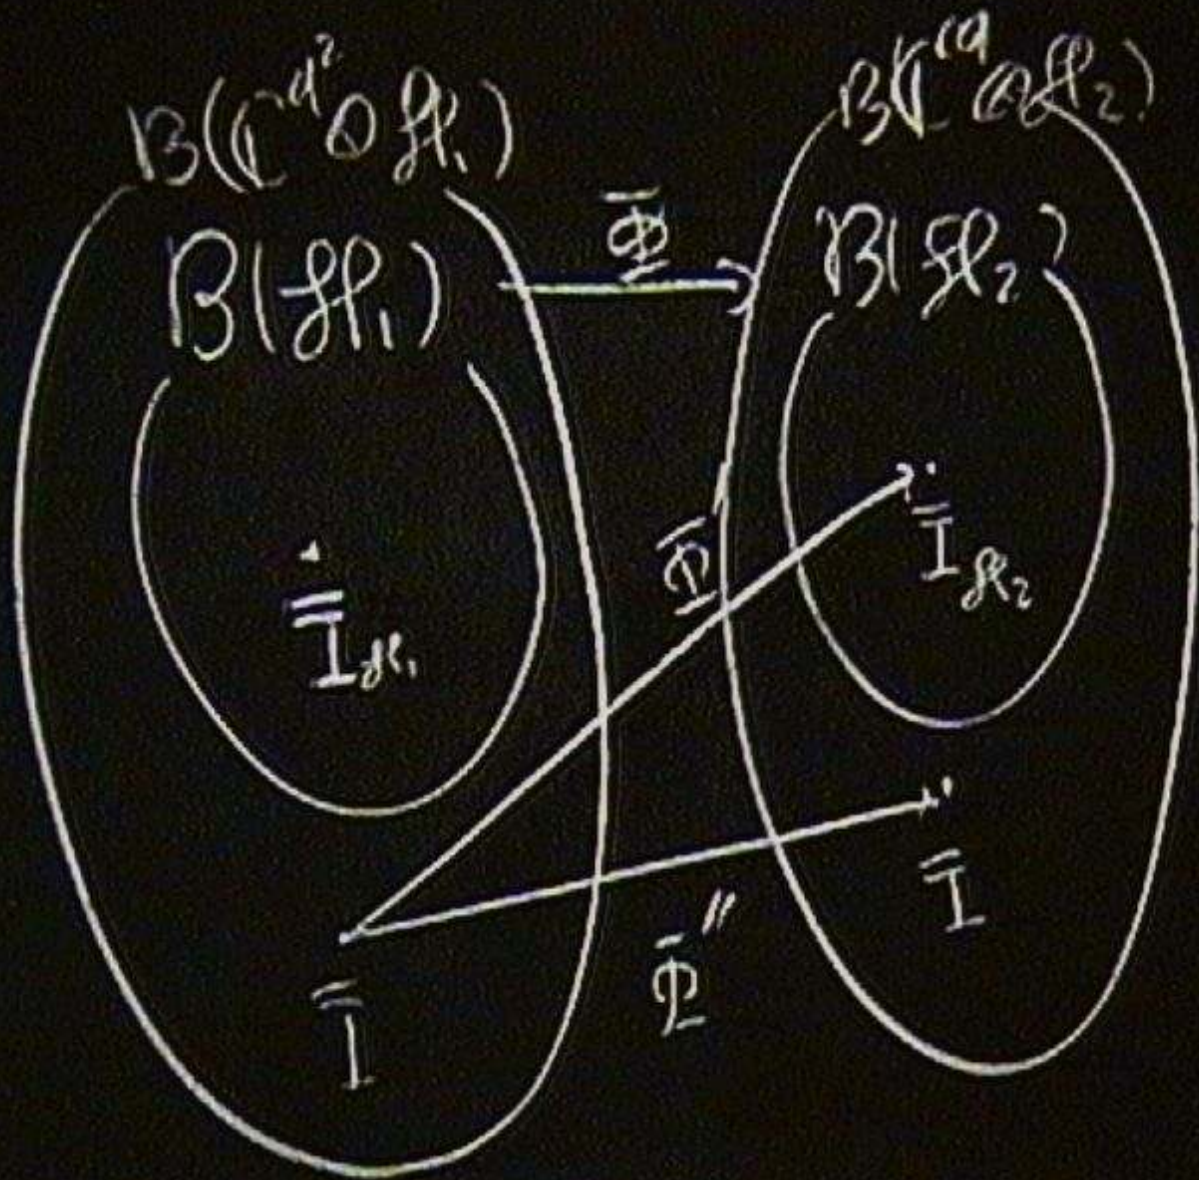 B(ℂ^{q²} ⊗ ℋ₁)
B(ℂ^{q} ⊗ ℋ₂)
B(ℋ₁)
Φ
B(ℋ₂)
Φ'
I_{ℋ₂}
I_{ℋ₁}
Φ''
I
I